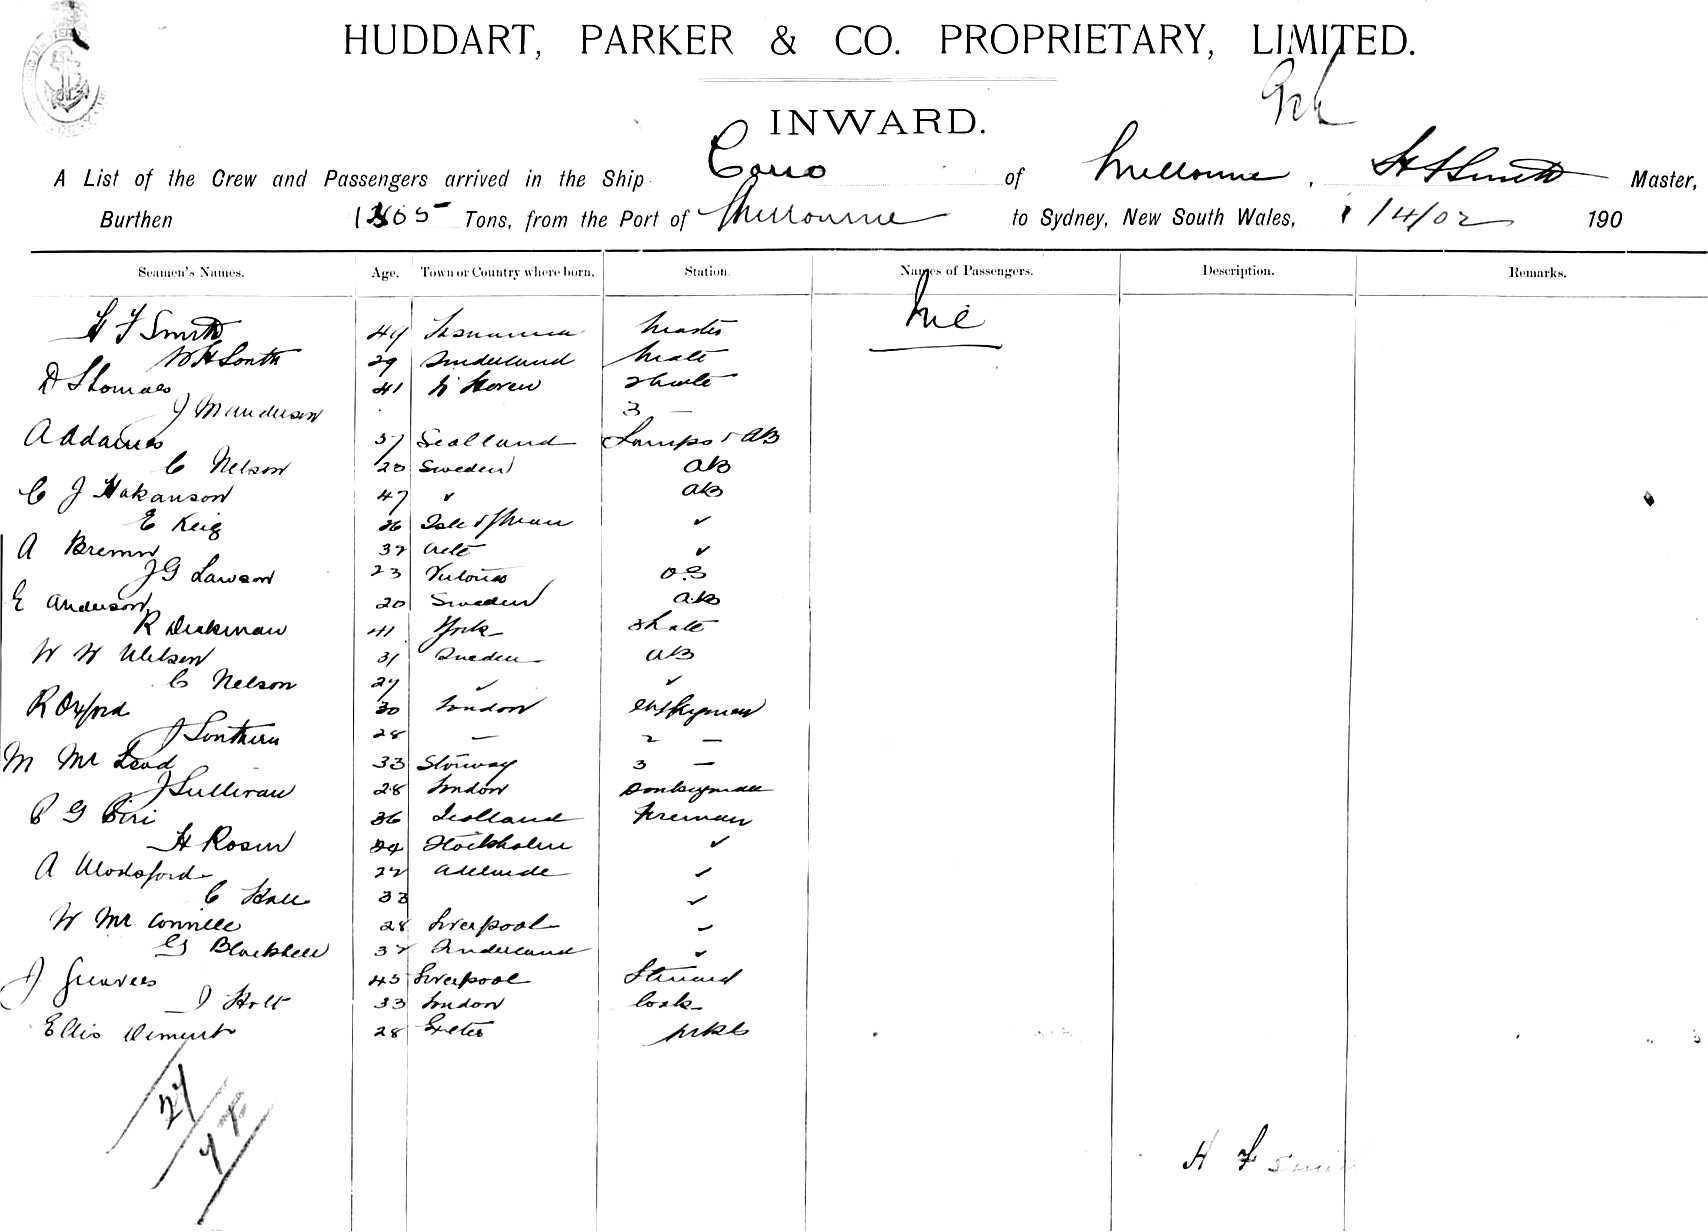 HUDDART, PARKER & CO. PROPRIETARY, LIMITED.
INWARD.
A List of the Crew and Passengers arrived in the Ship Corio of Melbourne, H F Smith Master,
Burthen Tons, from the Port of Melbourne to Sydney, New South Wales, 1/4/02 190
Seamen's Names. Age. Town or Country where born. Station. Names of Passengers. Description. Remarks.
H F Smith 49 Tasmania Master Nil
W H South 29 Sunderland Mate
D Thomas 41 2 Mate
J Manderson 3 —
A Adames 37 Lamps & AB
C Nelson 20 Sweden AB
C J Hakanson 47 " AB
E Keig 26 Isle of Man "
A Bremn 32 "
J G Lawson 23 Victoria O.S
E Anderson 20 Sweden A.B
R Dickman 41 York
W W Wilson 31 Sweden AB
C Nelson 27 " "
R Oxford 30 London
J Southern 28 — 2 —
M Mc Leod 33 3 —
J Sullivan 28 London Donkeyman
36 Fireman
H Rosen 24 Stockholm "
A Woodsford 22 Adelaide "
C Hall 33 "
W Mc Connell 28 Liverpool "
G Blackbell 32 Sunderland "
J Greaves 45 Liverpool Steward
J Holt 33 London Cook
Ellis Diment 28 Exeter
27
H F Smith